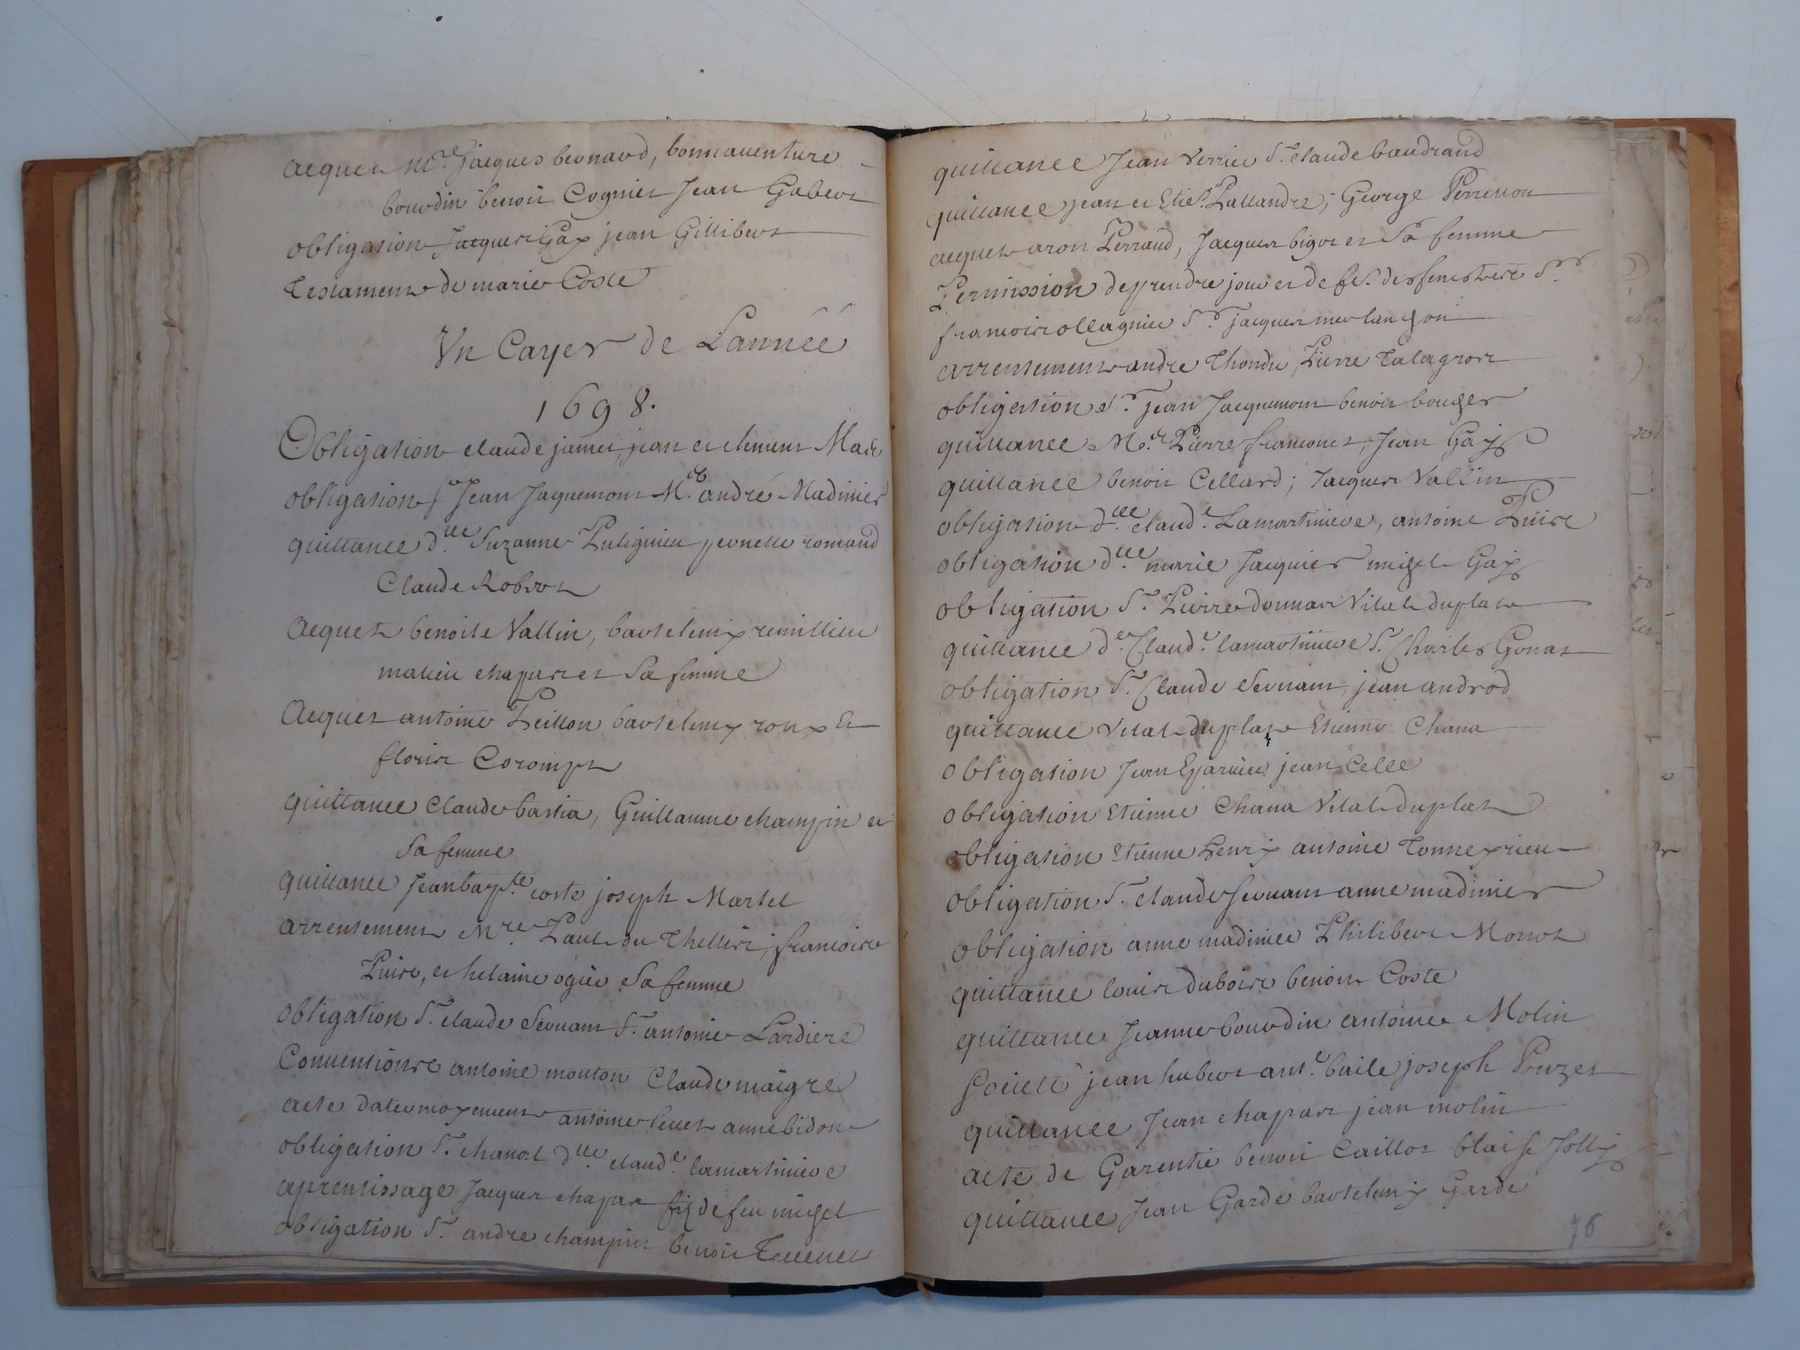 acquet Mre Jacques bernard, bonnauenture
bourdin benoit Cogniet Jean Gabert
obligation Jacques Gay jean Gillibert
Testament de marie Coste
Vn Cayer de Lannée
1698.
Obligation claude jamet, jean et clement
obligation Sr Jean Jaquemont Me andré Madinier
quittance dlle Suzanne peronette romand
Claude Robert
Acquet benoite Vallin, bartelemy remillieu
matieu chapuis et Sa femme
Acquet antoine Peillon bartelemy roux Et
florie Coromps
quittance Claude bastia, Guillaume champin et
Sa femme
quittance Jean bapte coste joseph Martel
arrentement Mre Paul du Thellis; francoise
Puire, et helaine ogier Sa femme
obligation Sr claude Seruant Sr antoine Lardiere
Conuentions antoine mouton Claude maigre
acte datermoyement antoine leuet anne bidon
obligation Sr chanal dlle claude lamartiniere
aprentissage Jacques chapas fils de feu migel
obligation Sr andre champin benoit
quittance Jean Verrier Sr claude baudrand
quittance jean et Etie Lallandre; George Perrenon
acquet aron Perraud, Jacques bigot et Sa femme
Permission de prendre jour et de fe. des fenestres Sr
francois ollagnier Sr jacques merlanchon
arrentement andre Thondu, Pierre Talagron
obligation Sr jean Jacquemont benoit bouchet
quittance Me Pierre francones, Jean Gay
quittance benoit Cellard; Jacques Vallin
obligation dlle claude Lamartiniere, antoine Puire
obligation dlle marie Jacquier michel Gay
obligation Sr Pierre donnat Vital duplat
quittance de Claude lamartiniere Sr Charles Gonat
obligation Sr Claude Seruant, jean androd
quittance Vital duplat Etienne Chana
obligation Jean Garnier jean Celle
obligation Etienne Chana Vital duplat
obligation Etienne henry antoine Tonneyrieu
obligation Sr claude seruant anne madinier
obligation anne madinier Philibert Monot
quittance louis dubois benoit Coste
quittance Jeanne bourdin antoine Molin
Societé jean hubert ant.e baile joseph Pouzet
quittance Jean chapas jean molin
acte de Garentie benoit Caillot blaise Jolly
quittance Jean Garde bartelemy Garde
76